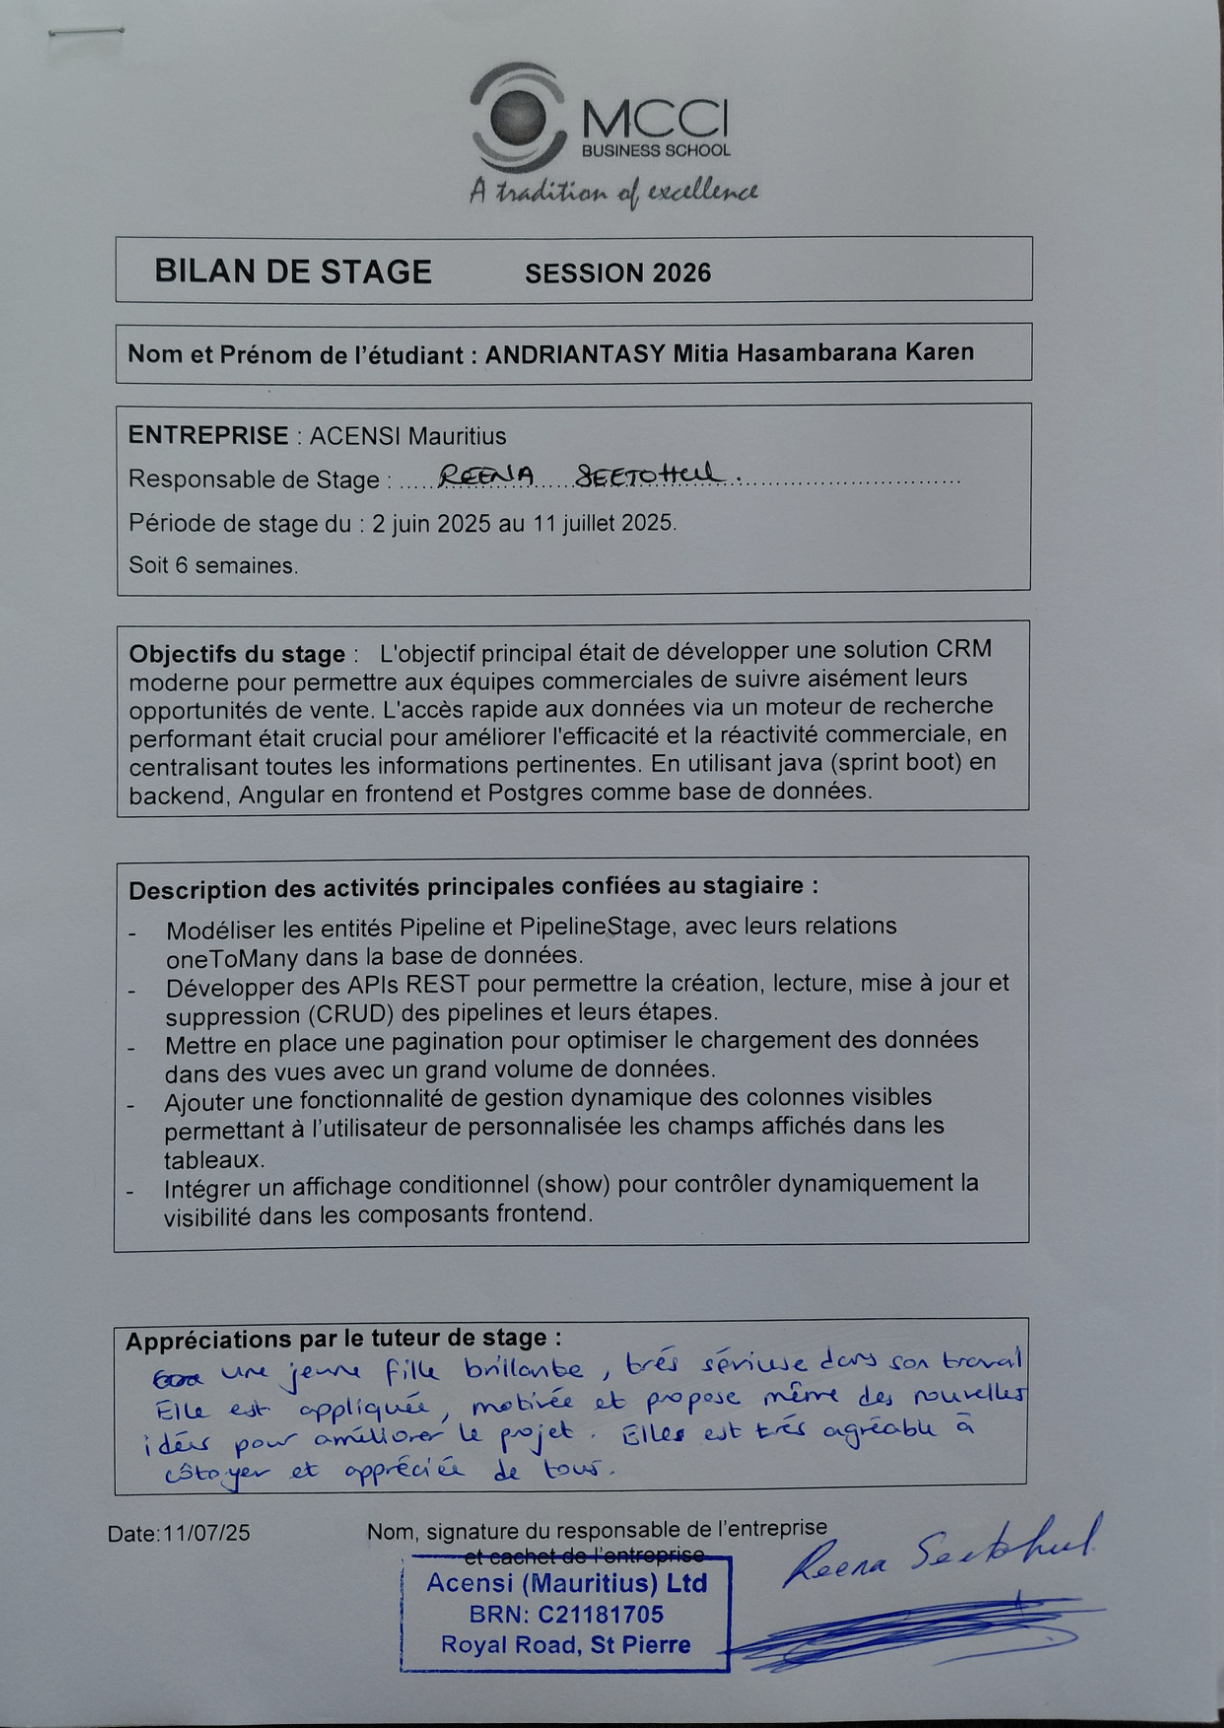 MCCI
BUSINESS SCHOOL
A tradition of excellence
BILAN DE STAGE SESSION 2026
Nom et Prénom de l'étudiant : ANDRIANTASY Mitia Hasambarana Karen
ENTREPRISE : ACENSI Mauritius
Responsable de Stage : ..... REENA SEETOHUL. .....
Période de stage du : 2 juin 2025 au 11 juillet 2025.
Soit 6 semaines.
Objectifs du stage : L'objectif principal était de développer une solution CRM
moderne pour permettre aux équipes commerciales de suivre aisément leurs
opportunités de vente. L'accès rapide aux données via un moteur de recherche
performant était crucial pour améliorer l'efficacité et la réactivité commerciale, en
centralisant toutes les informations pertinentes. En utilisant java (sprint boot) en
backend, Angular en frontend et Postgres comme base de données.
Description des activités principales confiées au stagiaire :
- Modéliser les entités Pipeline et PipelineStage, avec leurs relations
oneToMany dans la base de données.
- Développer des APIs REST pour permettre la création, lecture, mise à jour et
suppression (CRUD) des pipelines et leurs étapes.
- Mettre en place une pagination pour optimiser le chargement des données
dans des vues avec un grand volume de données.
- Ajouter une fonctionnalité de gestion dynamique des colonnes visibles
permettant à l'utilisateur de personnalisée les champs affichés dans les
tableaux.
- Intégrer un affichage conditionnel (show) pour contrôler dynamiquement la
visibilité dans les composants frontend.
Appréciations par le tuteur de stage :
une jeune fille brillante, trés sérieuse dans son travail
Elle est appliquée, motivée et propose même des nouvelles
idées pour améliorer le projet. Elles est trés agréable à
côtoyer et appréciée de tous.
Date:11/07/25 Nom, signature du responsable de l'entreprise
et cachet de l'entreprise
Reena Seetohul
Acensi (Mauritius) Ltd
BRN: C21181705
Royal Road, St Pierre